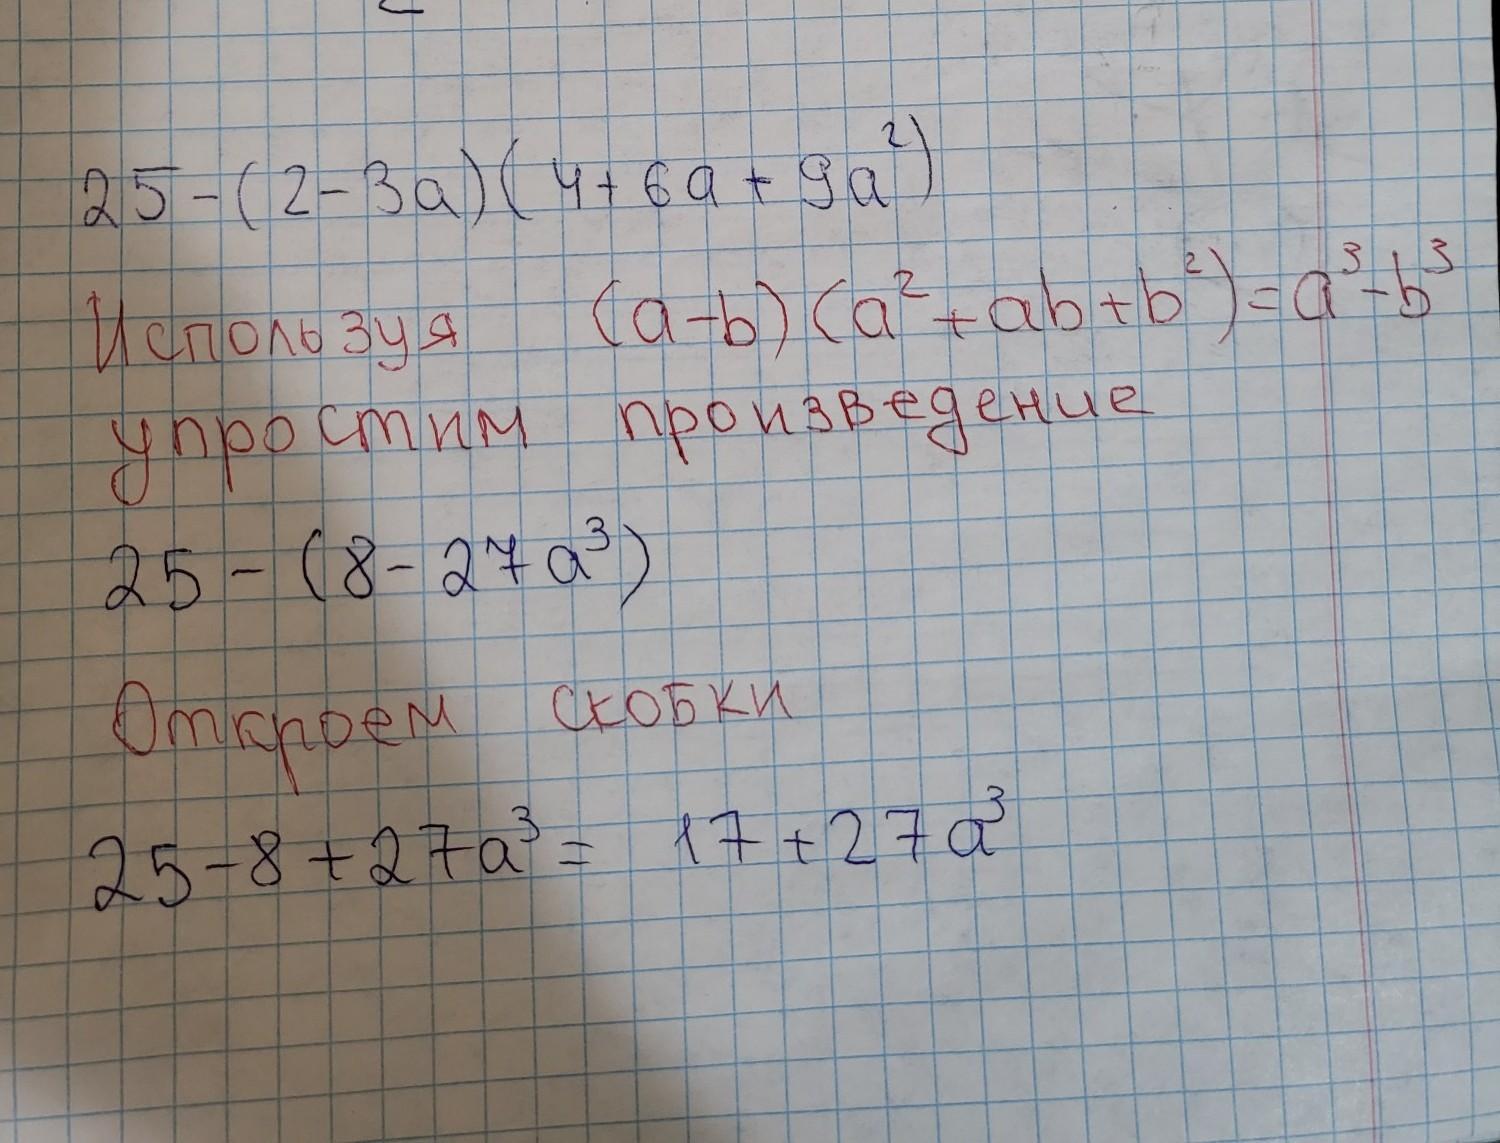 25-(2-3a)(4+6a+9a²)
Используя (a-b)(a²+ab+b²)=a³-b³
упростим произведение
25-(8-27a³)
Откроем скобки
25-8+27a³= 17+27a³